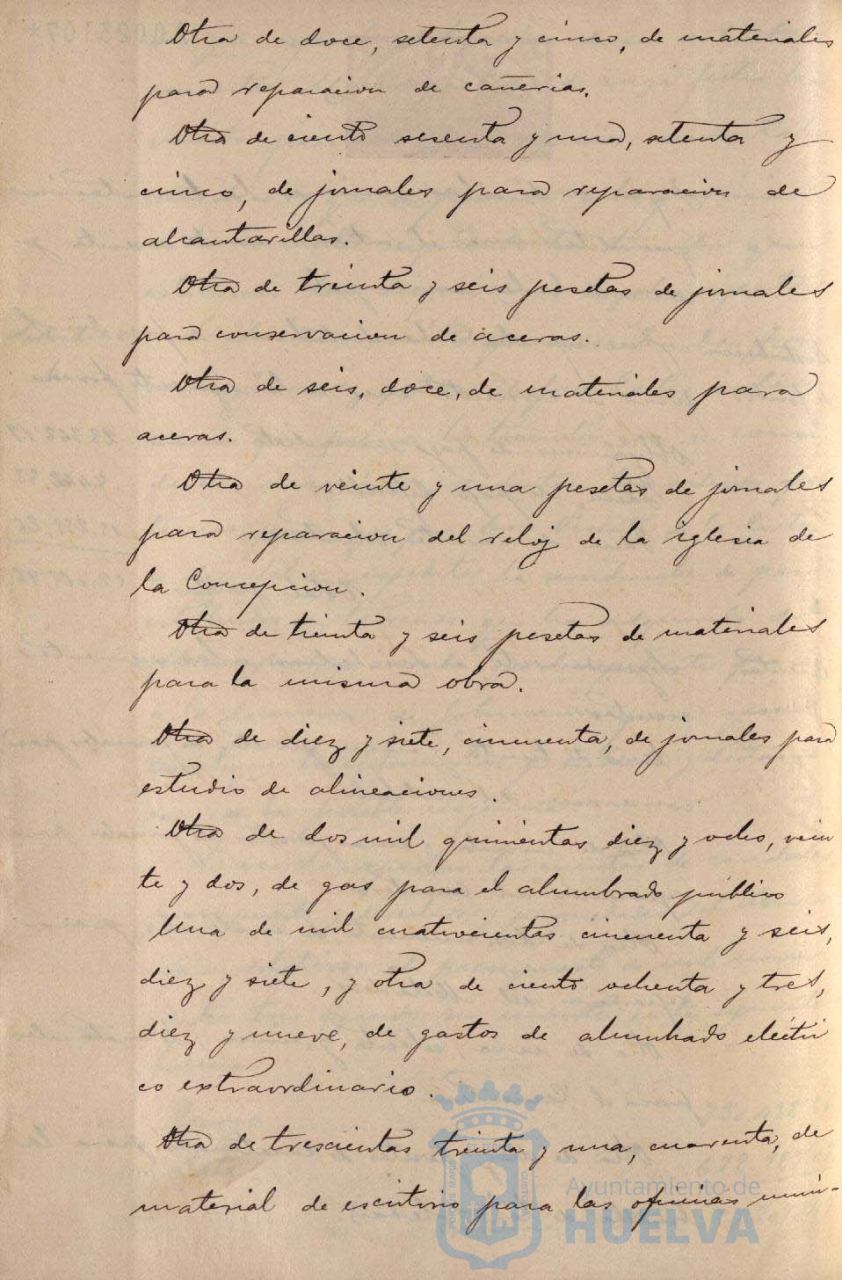 Otra de doce, setenta y cinco, de materiales
para reparacion de cañerias.
Otra de ciento sesenta y una, setenta y
cinco, de jornales para reparacion de
alcantarillas.
Otra de treinta y seis pesetas de jornales
para conservacion de aceras.
Otra de seis, doce, de materiales para
aceras.
Otra de veinte y una pesetas de jornales
para reparacion del reloj de la iglesia de
la Concepcion.
Otra de treinta y seis pesetas de materiales
para la misma obra.
Otra de diez y siete, cincuenta, de jornales para
estudio de alineaciones.
Otra de dos mil quinientas diez y ocho, vein
te y dos, de gas para el alumbrado público
Una de mil cuatrocientas cincuenta y seis,
diez y siete, y otra de ciento ochenta y tres,
diez y nueve, de gastos de alumbrado eléctri
co extraordinario.
Otra de trescientas treinta y una, cuarenta, de
material de escritorio para las oficinas muni-
Ayuntamiento de
HUELVA